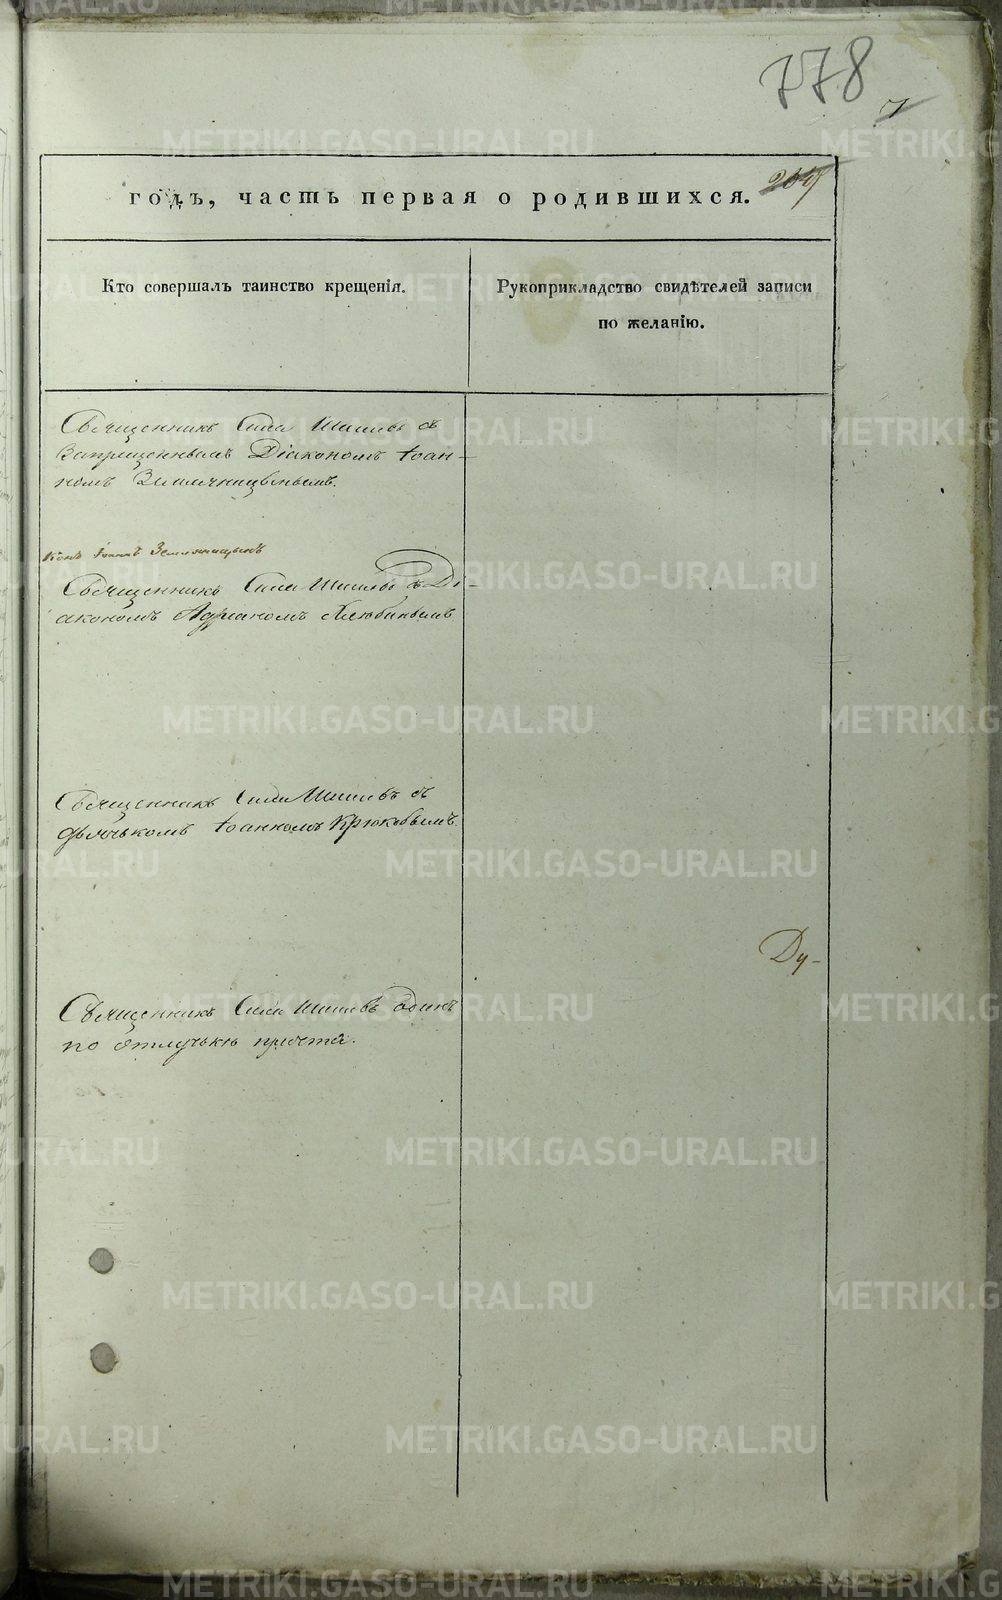 778
7
204
годъ, часть первая о родившихся.
Кто совершалъ таинство крещенія.
Рукоприкладство свидѣтелей записи
по желанію.
Священникъ Сила Шишевъ съ
Запрещеннымъ Діакономъ Іоан-
номъ Земляницынымъ.
Іоаннъ Земляницынъ
Священникъ Сила Шишевъ съ Ді-
акономъ Адрианомъ Хлюбинымъ
Священникъ Сила Шишевъ съ
дьячькомъ Іоанномъ Крюковымъ.
Ду-
Священникъ Сила Шишевъ одинъ
по отлучькѣ причта.
METRIKI.GASO-URAL.RU